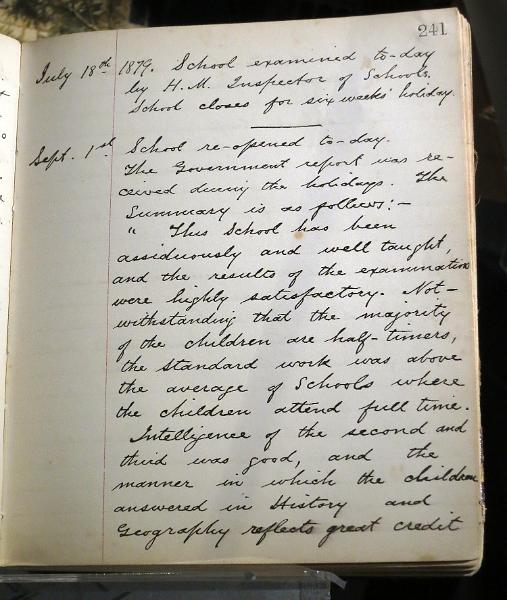 241
July 18th 1879. School examined to-day
by H. M. Inspector of Schools.
School closes for six weeks' holiday.
Sept. 1st School re-opened to-day.
The Government report was re-
ceived during the holidays. The
Summary is as follows:-
" This School has been
assiduously and well taught,
and the results of the examination
were highly satisfactory. Not-
withstanding that the majority
of the children are half-timers,
the standard work was above
the average of Schools where
the children attend full time.
Intelligence of the second and
third was good, and the
manner in which the children
answered in History and
Geography reflects great credit